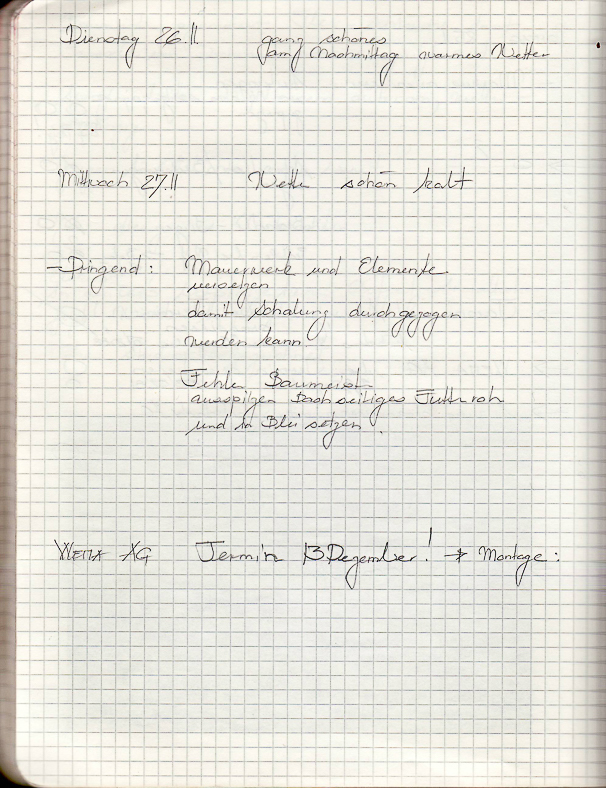 Dienstag 26.11 ganz schönes
am Nachmittag warmes Wetter
Mittwoch 27.11 Wetter schön kalt
- Dringend: Mauerwerk und Elemente
versetzen
damit Schalung durchgezogen
werden kann
Fehler Baumeister
ausspitzen Dachseitiges Futterroh
und in Blei setzen.
AG Termin 13 Dezember! → Montage: